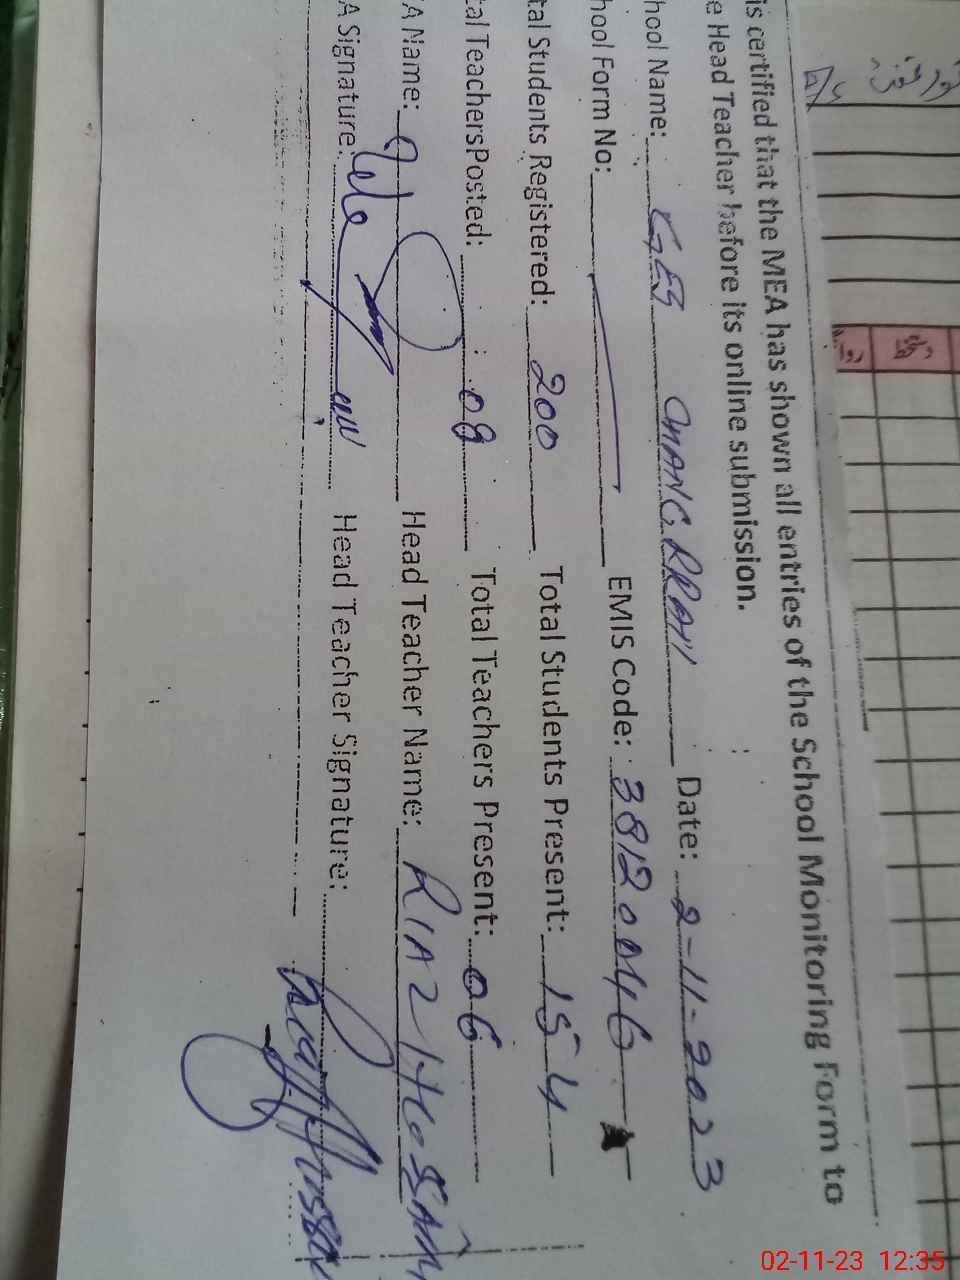 is certified that the MEA has shown all entries of the School Monitoring Form to
e Head Teacher before its online submission.
hool Name: GES Date: 2-11-2023
hool Form No: EMIS Code: 38120046
tal Students Registered: 200 Total Students Present: 154
tal TeachersPosted: 08 Total Teachers Present: 06
A Name: Head Teacher Name: RIAZ HUSSAIN
A Signature: Head Teacher Signature:
02-11-23 12:35